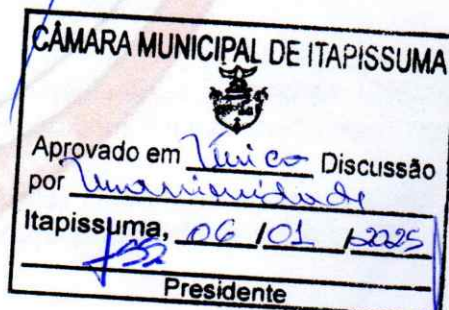 CÂMARA MUNICIPAL DE ITAPISSUMA
Aprovado em Única Discussão
por Unanimidade
Itapissuma, 06 / 01 / 2025
Presidente